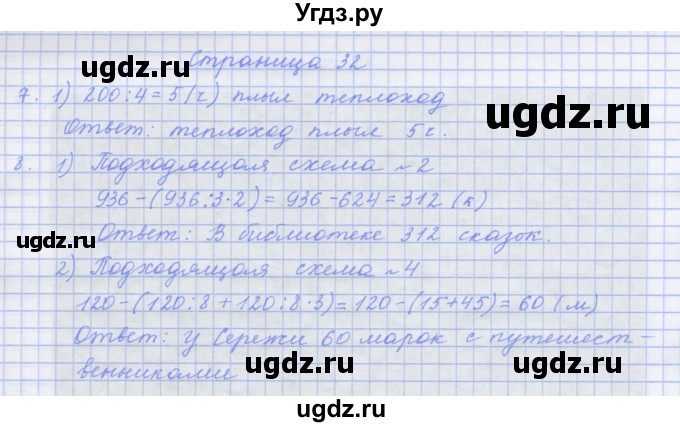 Угдз.ру
Страница 32
7. 1) 200:4=5(ч) плыл теплоход
Ответ: теплоход плыл 5ч.
8. 1) Подходящая схема ~2
936-(936:3·2)=936-624=312 (к)
Ответ: В библиотеке 312 сказок.
2) Подходящая схема ~4
120-(120:8+120:8·3)=120-(15+45)=60 (м)
Ответ: У Сережи 60 марок с путешест-
венниками
ugdz.ru
ugdz.ru
ugdz.ru
ugdz.ru
ugdz.ru
ugdz.ru
ugdz.ru
ugdz.ru